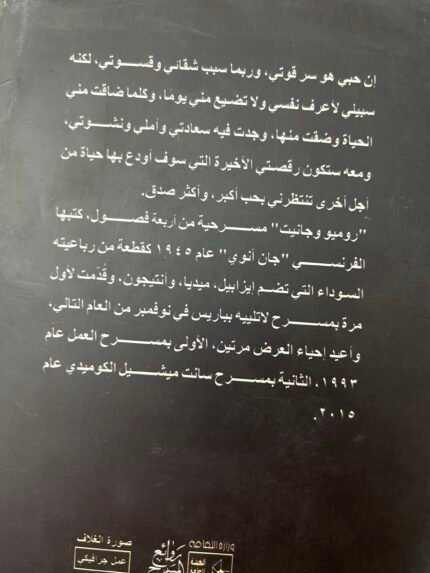 إن حبي هو سر قوتي، وربما سبب شقائي وقسوتي، لكنه
سبيلي لأعرف نفسي ولا تضيع مني يومًا، وكلما ضاقت مني
الحياة وضقت منها، وجدت فيه سعادتي وأملي ونشوتي،
ومعه ستكون رقصتي الأخيرة التي سوف أودع بها حياة من
أجل أخرى تنتظرني بحب أكبر، وأكثر صدق.
"روميو وجانيت" مسرحية من أربعة فصول، كتبها
الفرنسي "جان آنوي" عام ١٩٤٥ كقطعة من رباعيته
السوداء التي تضم إيزابيل، ميديا، وأنتيجون، وقدمت لأول
مرة بمسرح لاتلييه بباريس في نوفمبر من العام التالي،
وأعيد إحياء العرض مرتين، الأولى بمسرح العمل عام
١٩٩٣، الثانية بمسرح سانت ميشيل الكوميدي عام
٢٠١٥.
وزارة الثقافة
روائع المسرح
صورة الغلاف
عمل جرافيكي